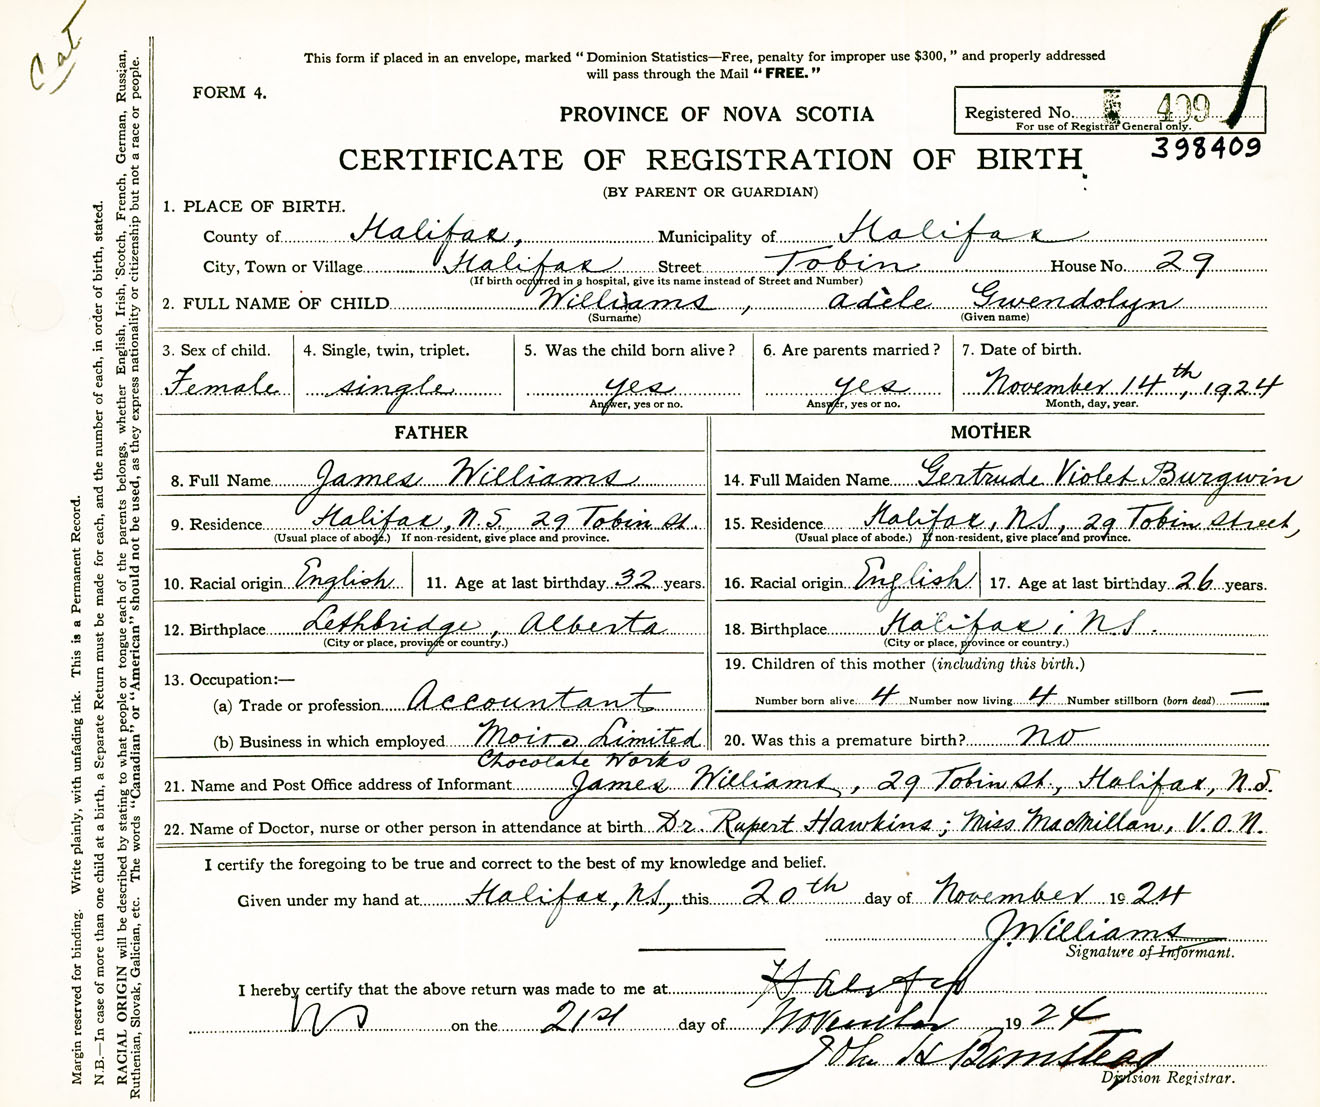 Cat
This form if placed in an envelope, marked "Dominion Statistics—Free, penalty for improper use $300," and properly addressed
will pass through the Mail "FREE."
FORM 4.
PROVINCE OF NOVA SCOTIA
Registered No. 409
For use of Registrar General only.
398409
CERTIFICATE OF REGISTRATION OF BIRTH
(BY PARENT OR GUARDIAN)
1. PLACE OF BIRTH.
County of Halifax, Municipality of Halifax
City, Town or Village Halifax Street Tobin House No. 29
(If birth occurred in a hospital, give its name instead of Street and Number)
2. FULL NAME OF CHILD Williams, Adèle Gwendolyn
(Surname) (Given name)
3. Sex of child. 4. Single, twin, triplet. 5. Was the child born alive? 6. Are parents married? 7. Date of birth.
Female single yes yes November 14th, 1924
Answer, yes or no. Answer, yes or no. Month, day, year.
FATHER MOTHER
8. Full Name James Williams 14. Full Maiden Name Gertrude Violet Burgwin
9. Residence Halifax, N.S. 29 Tobin St. 15. Residence Halifax, N.S., 29 Tobin Street,
(Usual place of abode.) If non-resident, give place and province. (Usual place of abode.) If non-resident, give place and province.
10. Racial origin English 11. Age at last birthday 32 years. 16. Racial origin English 17. Age at last birthday 26 years.
12. Birthplace Lethbridge, Alberta 18. Birthplace Halifax, N.S.
(City or place, province or country.) (City or place, province or country.)
13. Occupation:— 19. Children of this mother (including this birth.)
(a) Trade or profession Accountant Number born alive 4 Number now living 4 Number stillborn (born dead) —
(b) Business in which employed Moirs Limited 20. Was this a premature birth? no
Chocolate Works
21. Name and Post Office address of Informant James Williams, 29 Tobin St., Halifax, N.S.
22. Name of Doctor, nurse or other person in attendance at birth Dr. Rupert Hawkins; Miss MacMillan, V.O.N.
I certify the foregoing to be true and correct to the best of my knowledge and belief.
Given under my hand at Halifax, N.S., this 20th day of November 1924
J. Williams
Signature of Informant.
I hereby certify that the above return was made to me at Halifax
NS on the 21st day of November 1924
John H Barnstead
Division Registrar.
Margin reserved for binding. Write plainly, with unfading ink. This is a Permanent Record.
N.B.—In case of more than one child at a birth, a Separate Return must be made for each, and the number of each, in order of birth, stated.
RACIAL ORIGIN will be described by stating to what people or tongue each of the parents belongs, whether English, Irish, Scotch, French, German, Russian,
Ruthenian, Slovak, Galician, etc. The words "Canadian" or "American" should not be used, as they express nationality or citizenship but not a race or people.